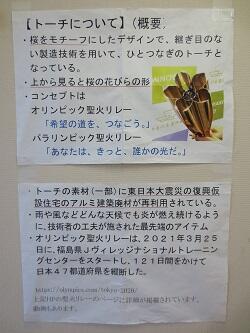 【トーチについて】(概要)
・桜をモチーフにしたデザインで、継ぎ目のな
い製造技術を用いて、ひとつなぎのトーチと
なっている。
・上から見ると桜の花びらの形
・コンセプトは
オリンピック聖火リレー
「希望の道を、つなごう。」
パラリンピック聖火リレー
「あなたは、きっと、誰かの光だ。」
・トーチの素材(一部)に東日本大震災の復興仮
設住宅のアルミ建築廃材が再利用されている。
・雨や風などどんな天候でも炎が燃え続けるよう
に、技術者の工夫が施された最先端のアイテム
・オリンピック聖火リレーは、2021年3月25
日に、福島県Jヴィレッジナショナルトレーニン
グセンターをスタートし、121日間をかけて
日本47都道府県を縦断した。
https://olympics.com/tokyo-2020/
上記HPの聖火リレーのページに詳細が掲載されています。
動画もあります。